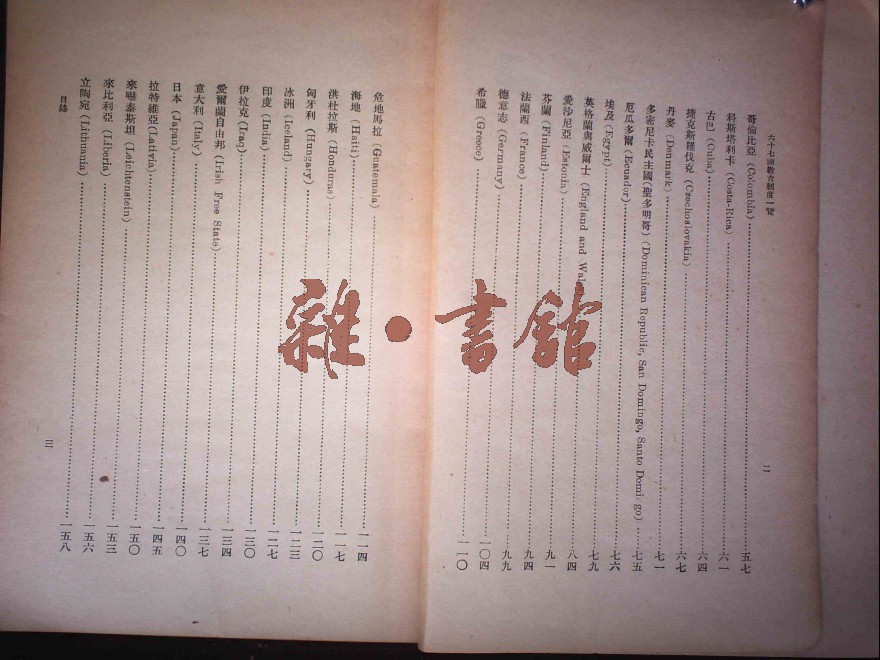 六十七國教育制度一覽
哥倫比亞 (Colombia)……五七
科斯塔利卡 (Costa-Rica)……六一
古巴 (Cuba)……六四
捷克斯羅伐克 (Czechoslovakia)……六七
丹麥 (Denmark)……七一
多密尼卡民主國(聖多明哥) (Dominican Republic, San Domingo, Santo Domi go)……七五
厄瓜多爾 (Ecuador)……七六
埃及 (Egypt)……七九
英格蘭與威爾士 (England and Wales……八四
愛沙尼亞 (Estonia)……九一
芬蘭 (Finland)……九四
法蘭西 (France)……九九
德意志 (Germany)……一〇四
希臘 (Greece)……一一〇
二
危地馬拉 (Guatemala)……一一四
海地 (Haiti)……一一七
洪杜拉斯 (Honduras)……一二〇
匈牙利 (Hungary)……一二三
冰洲 (Iceland)……一二七
印度 (India)……一三〇
伊拉克 (Iraq)……一三四
愛爾蘭自由邦 (Irish Free State)……一三七
意大利 (Italy)……一四〇
日本 (Japan)……一四五
拉特維亞 (Lativia)……一五〇
來嗤泰斯坦 (Leichtenstein)……一五三
來比利亞 (Liberia)……一五六
立陶宛 (Lituania)……一五八
目錄
三
雜·書館